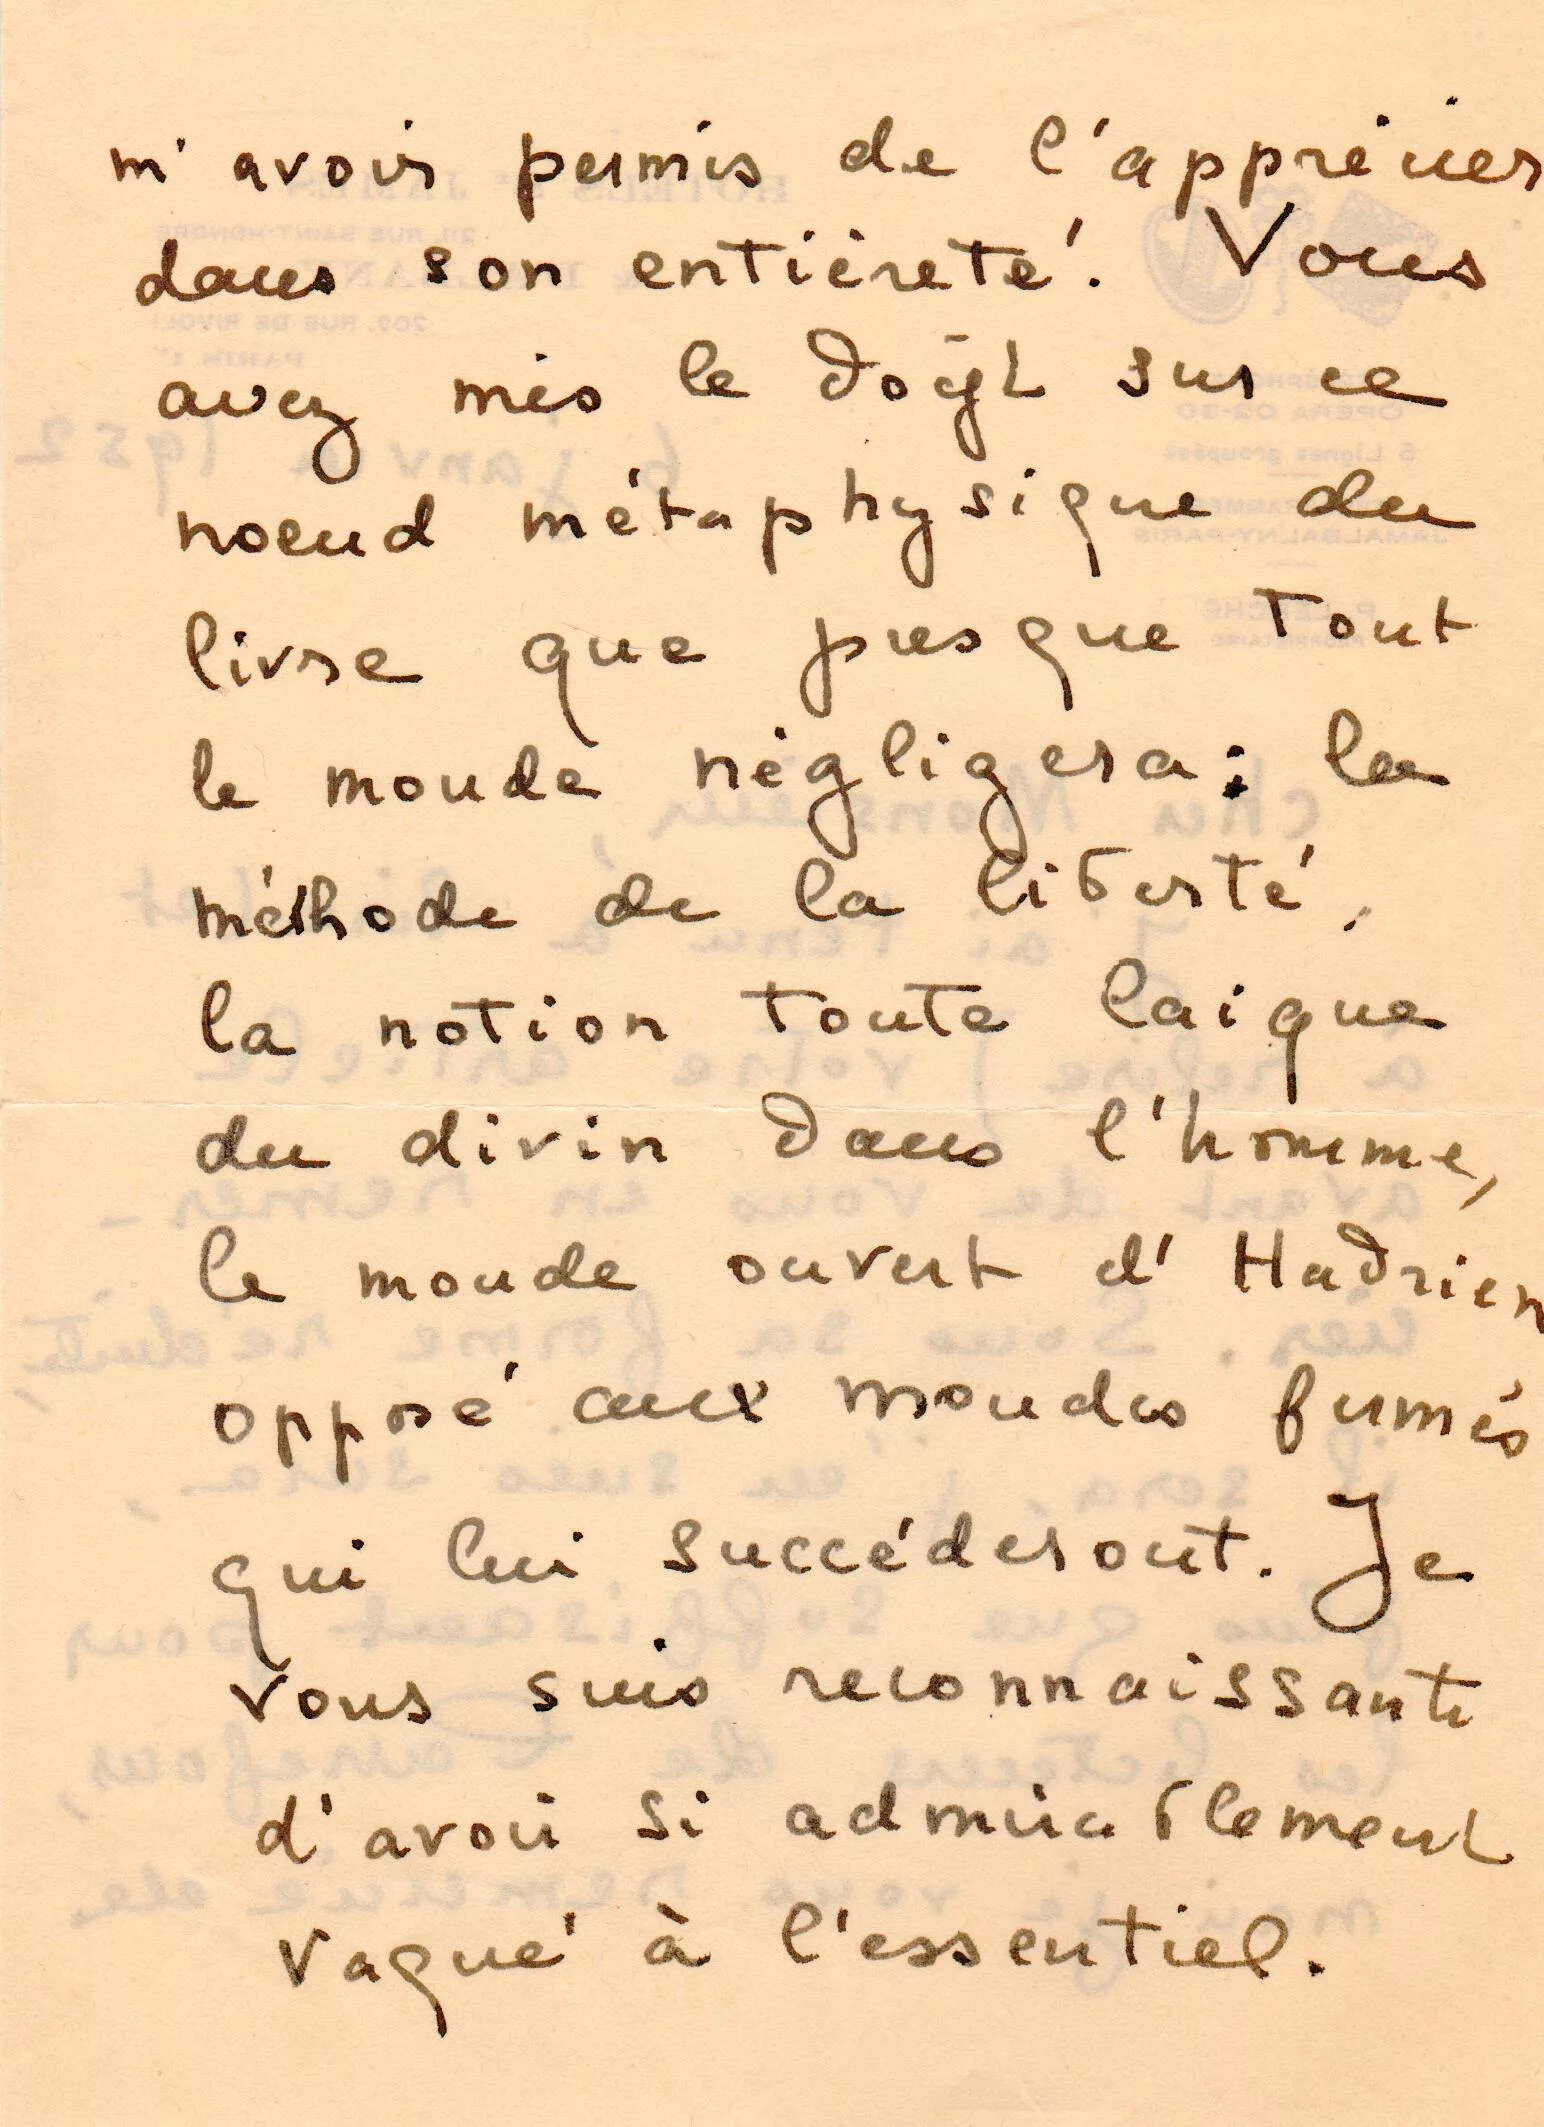 m'avoir permis de l'apprécier
dans son entièreté. Vous
avez mis le doigt sur ce
noeud métaphysique du
livre que presque tout
le monde négligera : la
méthode de la liberté,
la notion toute laïque
du divin dans l'homme,
le monde ouvert d'Hadrien
opposé aux mondes fermés
qui lui succéderont. Je
vous suis reconnaissante
d'avoir si admirablement
vaqué à l'essentiel.